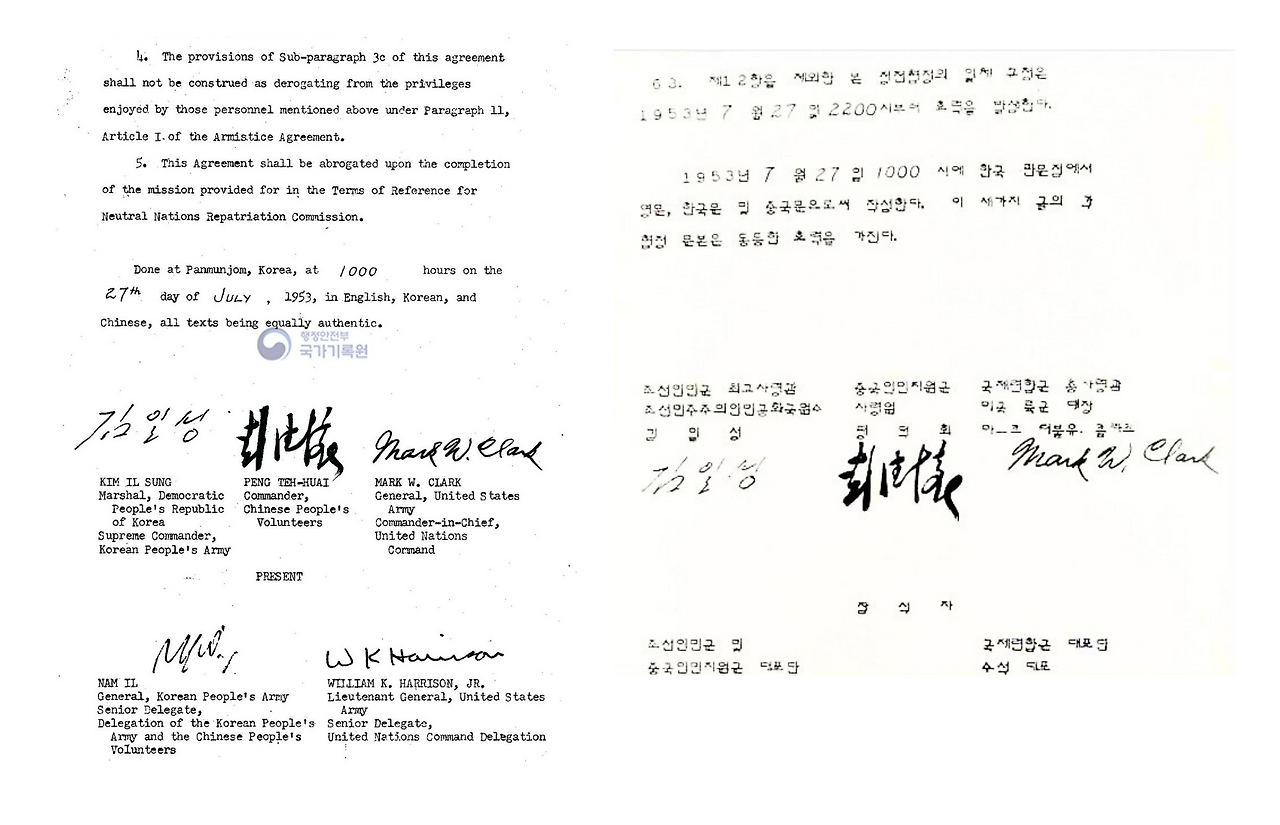 4. The provisions of Sub-paragraph 3c of this agreement
shall not be construed as derogating from the privileges
enjoyed by those personnel mentioned above under Paragraph 11,
Article I of the Armistice Agreement.
5. This Agreement shall be abrogated upon the completion
of the mission provided for in the Terms of Reference for
Neutral Nations Repatriation Commission.
Done at Panmunjom, Korea, at 1000 hours on the
27th day of JULY, 1953, in English, Korean, and
Chinese, all texts being equally authentic.
행정안전부
국가기록원
김일성 彭德懷 Mark W. Clark
KIM IL SUNG
Marshal, Democratic
People's Republic
of Korea
Supreme Commander,
Korean People's Army
PENG TEH-HUAI
Commander,
Chinese People's
Volunteers
MARK W. CLARK
General, United States
Army
Commander-in-Chief,
United Nations
Command
PRESENT
W K Harrison
NAM IL
General, Korean People's Army
Senior Delegate,
Delegation of the Korean People's
Army and the Chinese People's
Volunteers
WILLIAM K. HARRISON, JR.
Lieutenant General, United States
Army
Senior Delegate,
United Nations Command Delegation
63. 제12항을 제외한 본 정전협정의 일체 규정은
1953년 7 월 27 일 2200시부터 효력을 발생한다.
1953년 7 월 27 일 1000 시에 한국 판문점에서
영문, 한국문 및 중국문으로써 작성한다. 이 세가지 글의 각
협정 문본은 동등한 효력을 가진다.
조선인민군 최고사령관
조선민주주의인민공화국원수
김 일 성
김일성
중국인민지원군
사령원
펑 덕 회
彭德懷
국제련합군 총사령관
미국 륙군 대장
마크 더블유. 클라크
Mark W. Clark
참 석 자
조선인민군 및
중국인민지원군 대표단
국제련합군 대표단
수석 대표